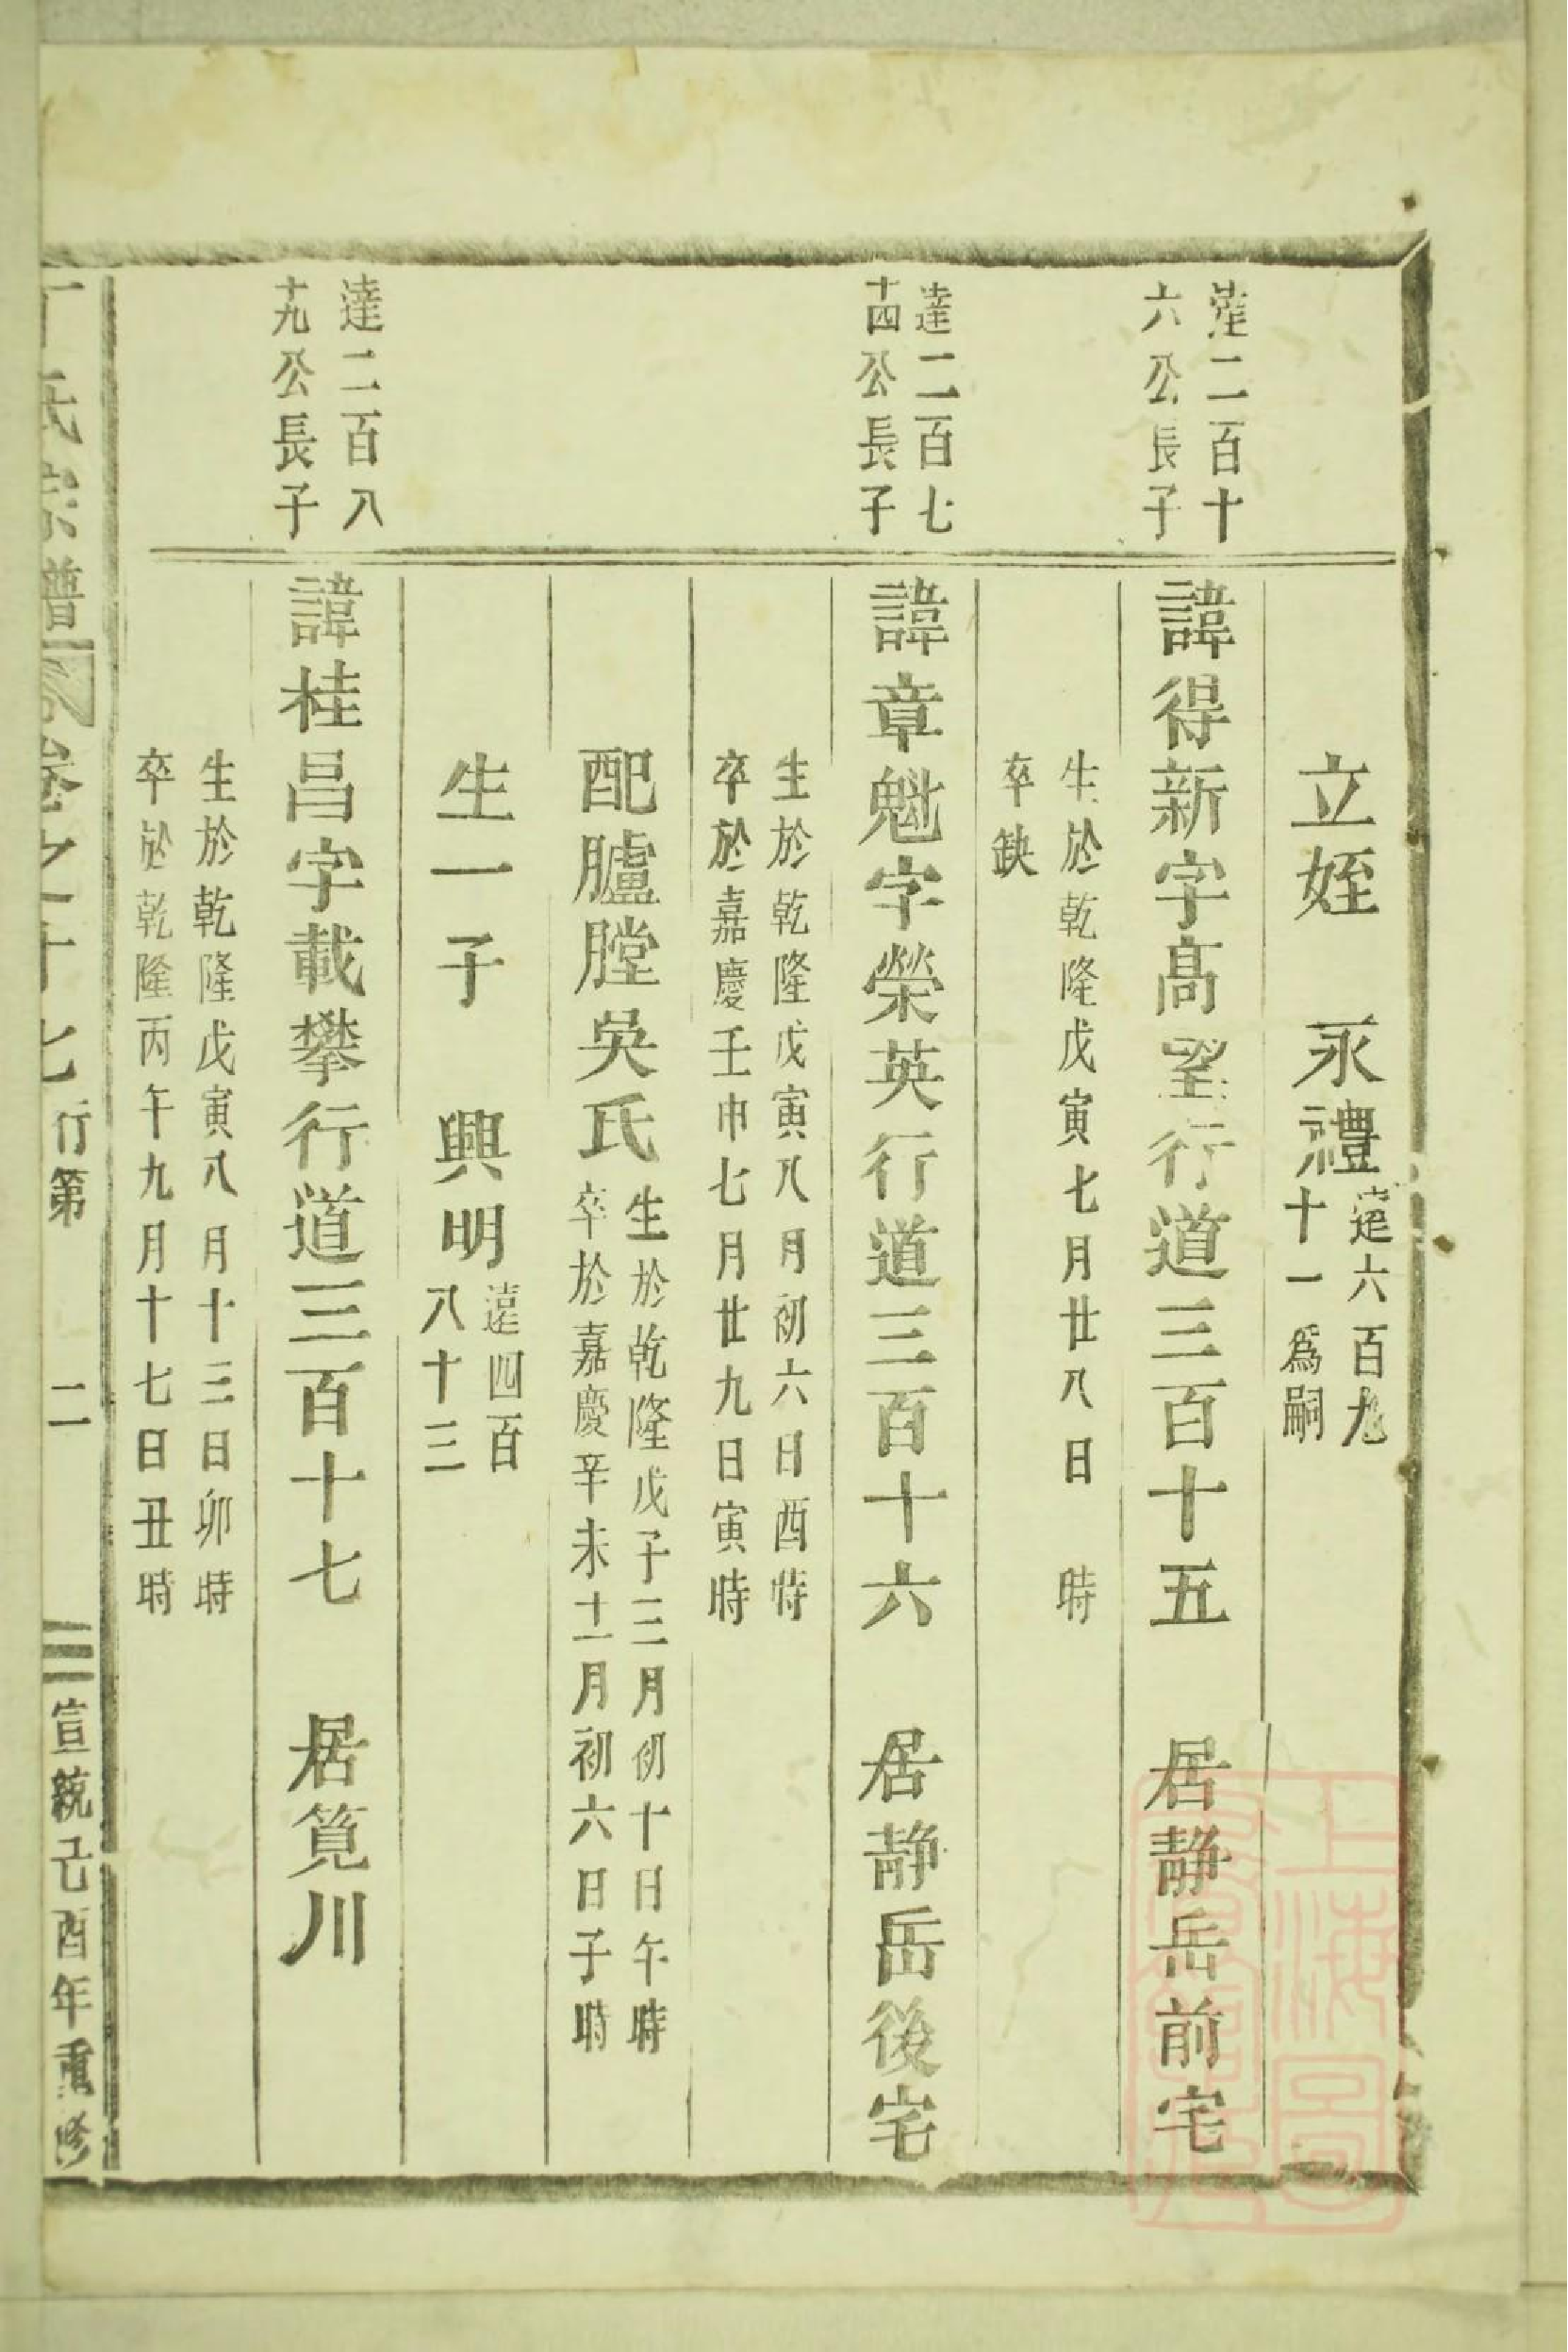 立姪　永禮
遠六百九
十一爲嗣
達二百十
六公長子
諱得新字高望行道三百十五　居靜岳前宅
生於乾隆戊寅七月廿八日　時
卒缺
達二百七
十四公長子
諱章魁字榮英行道三百十六　居靜岳後宅
生於乾隆戊寅八月初六日酉時
卒於嘉慶壬申七月廿九日寅時
配臚膛吳氏
生於乾隆戊子三月初十日午時
卒於嘉慶辛未十一月初六日子時
生一子　興明
遠四百
八十三
達二百八
十九公長子
諱桂昌字載攀行道三百十七　居筧川
生於乾隆戊寅八月十三日卯時
卒於乾隆丙午九月十七日丑時
氏宗譜　卷之十七　行第　二　宣統己酉年重修
上海圖書館藏